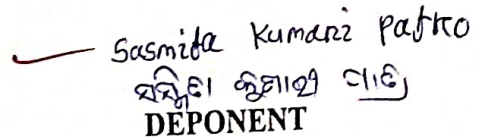 Sasmita Kumari Patro
ସସ୍ମିତା କୁମାରୀ ପାତ୍ର
DEPONENT